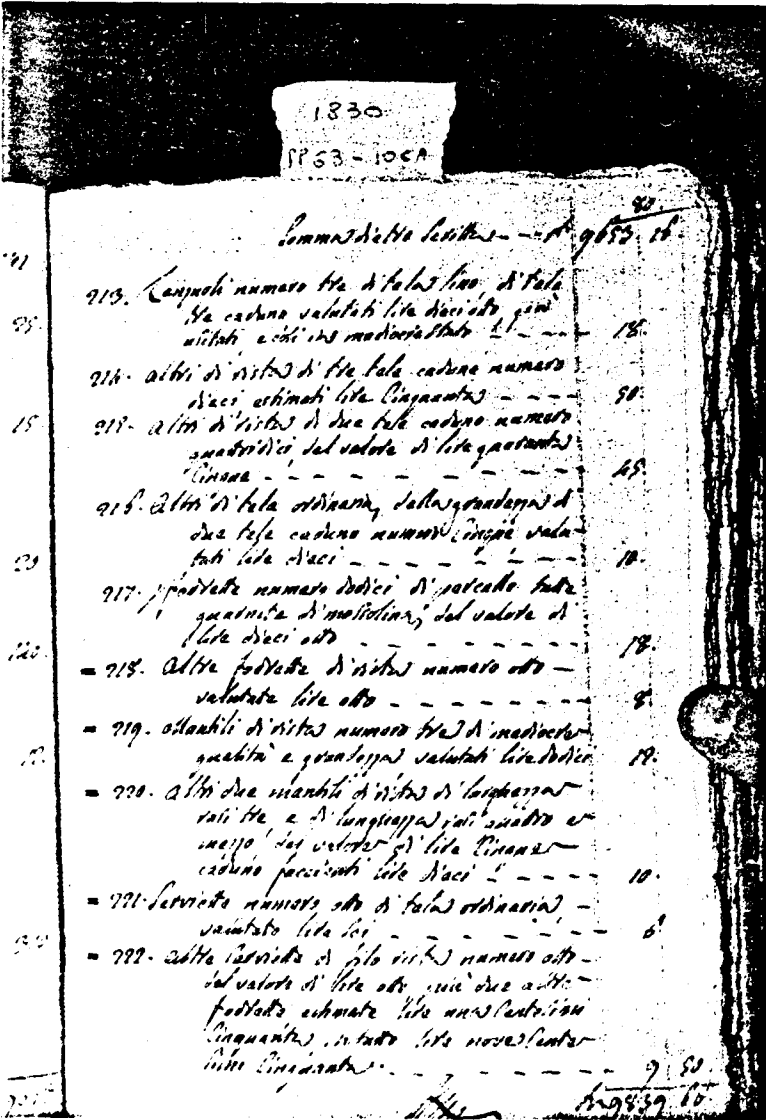 1830
PP 53-10CA
80.
Somma dietro scritta - - - 9653 16.
213. Lenzuoli numero tre di tela lino, di tele
tre caduno valutati lire dieci otto, già
usitati e così in mediocre stato - - - 18.
214. altri di rista di tre tele caduno numero
dieci estimati lire Cinquanta - - - - 50.
215. altri di rista di due tele caduno numero
quattordici del valore di lire quaranta
Cinque - - - - - - - - - 45.
216. altri di tela ordinaria, della grandezza di
due tele caduno numero Cinque valu-
tati lire dieci - - - - - - - 10.
217. fodrette numero dodici di percallo tutte
guarnite di mossolina, del valore di
lire dieci otto - - - - - - - - - 18.
= 218. Altre fodrette di rista numero otto -
valutate lire otto - - - - - - - - - 8.
= 219. Mantili di rista numero tre di mediocre
qualità e grandezza valutati lire dodici 12.
= 220. Altri due mantili di rista di larghezza
rasi tre, e di lunghezza rasi quattro e
mezzo, del valore di lire Cinque
caduno facienti lire dieci - - - - 10.
= 221. Serviette numero otto di tela ordinaria -
valutate lire sei - - - - - - - 6
= 222. altre serviette di filo rista numero otto -
del valore di lire otto, più due altre
fodrette estimate lire una Centesimi
Cinquanta, in tutto lire nove Cente-
simi Cinquanta. - - - - - - - - 9. 50.
9839 66